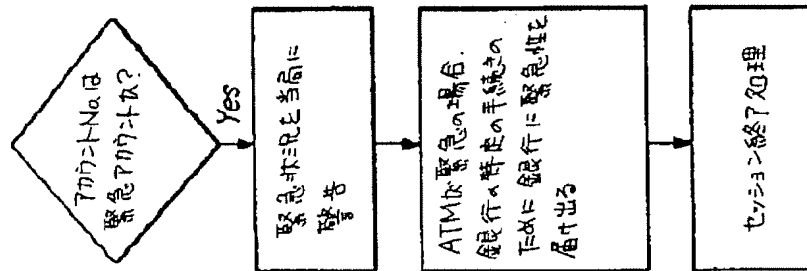 アカウントNoは
緊急アカウントか?
Yes
緊急状況を当局に
警告
ATMが緊急の場合.
銀行の特定の手続きの
ために銀行に緊急性を
届け出る
セッション終了処理